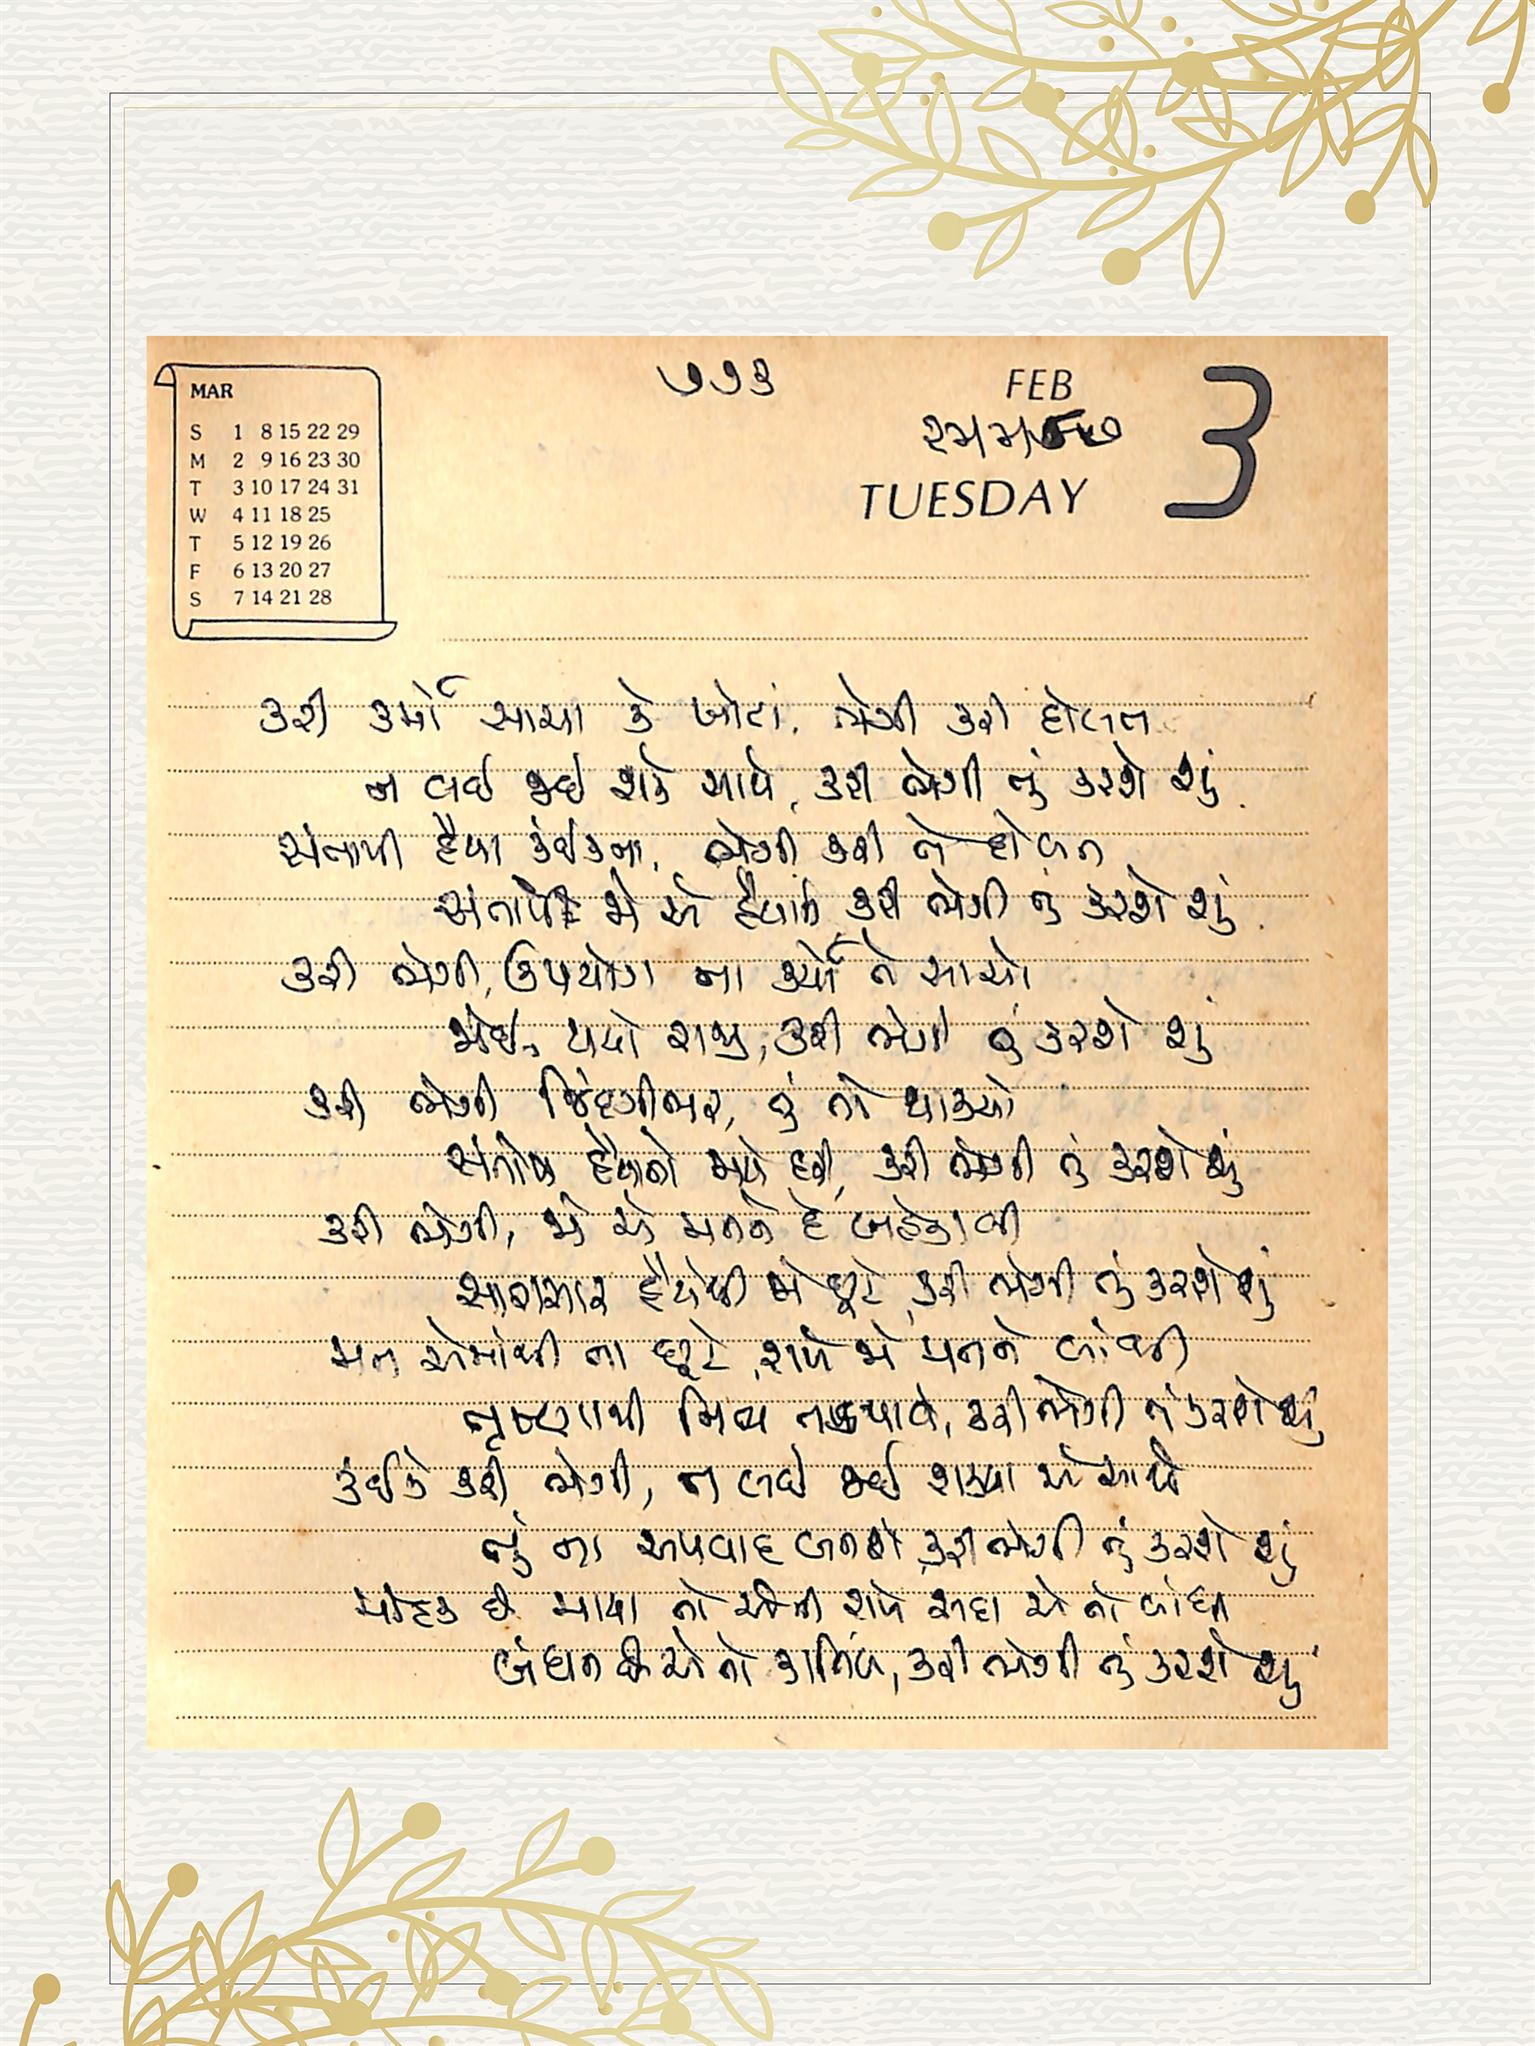 MAR
૭૭૩
FEB
3
TUESDAY
S 1 8 15 22 29
M 2 9 16 23 30
T 3 10 17 24 31
W 4 11 18 25
T 5 12 19 26
F 6 13 20 27
S 7 14 21 28
કરી કર્મો સાચા કે ખોટાં, ભેગી કરી દોલત
ન લઈ જઈ શકે સાથે, કરી ભેગી તું કરશે શું
સંતાપી હૈયા કંઈકના, ભેગી કરી તેં દોલત
સંતાપે જો એ હૈયાને કરી ભેગી તું કરશે શું
કરી ભેગી, ઉપયોગ ના કર્યો તેં સાચો
જોઈ થયો રાજી, કરી ભેગી તું કરશે શું
કરી ભેગી જિંદગીભર, તું તો થાક્યો
સંતોષ હૈયાનો જાયે હરી, કરી ભેગી તું કરશે શું
કરી ભેગી, જો એ મનને દે બહેકાવી
સારાસાર હૈયેથી જો છૂટે, કરી ભેગી તું કરશે શું
મન એમાંથી ના છૂટે, રાખે જો મનને બાંધી
તૃષ્ણાથી નિત્ય તડપાવે, કરી ભેગી તું કરશે શું
કંઈકે કરી ભેગી, ન લઈ જઈ શક્યા એ સાથે
તું ના અપવાદ બનશે, કરી ભેગી તું કરશે શું
મોહક છે માયા તો એની રાખે સદા એ તો બાંધી
બંધન છે એ તો કાતિલ, કરી ભેગી તું કરશે શું